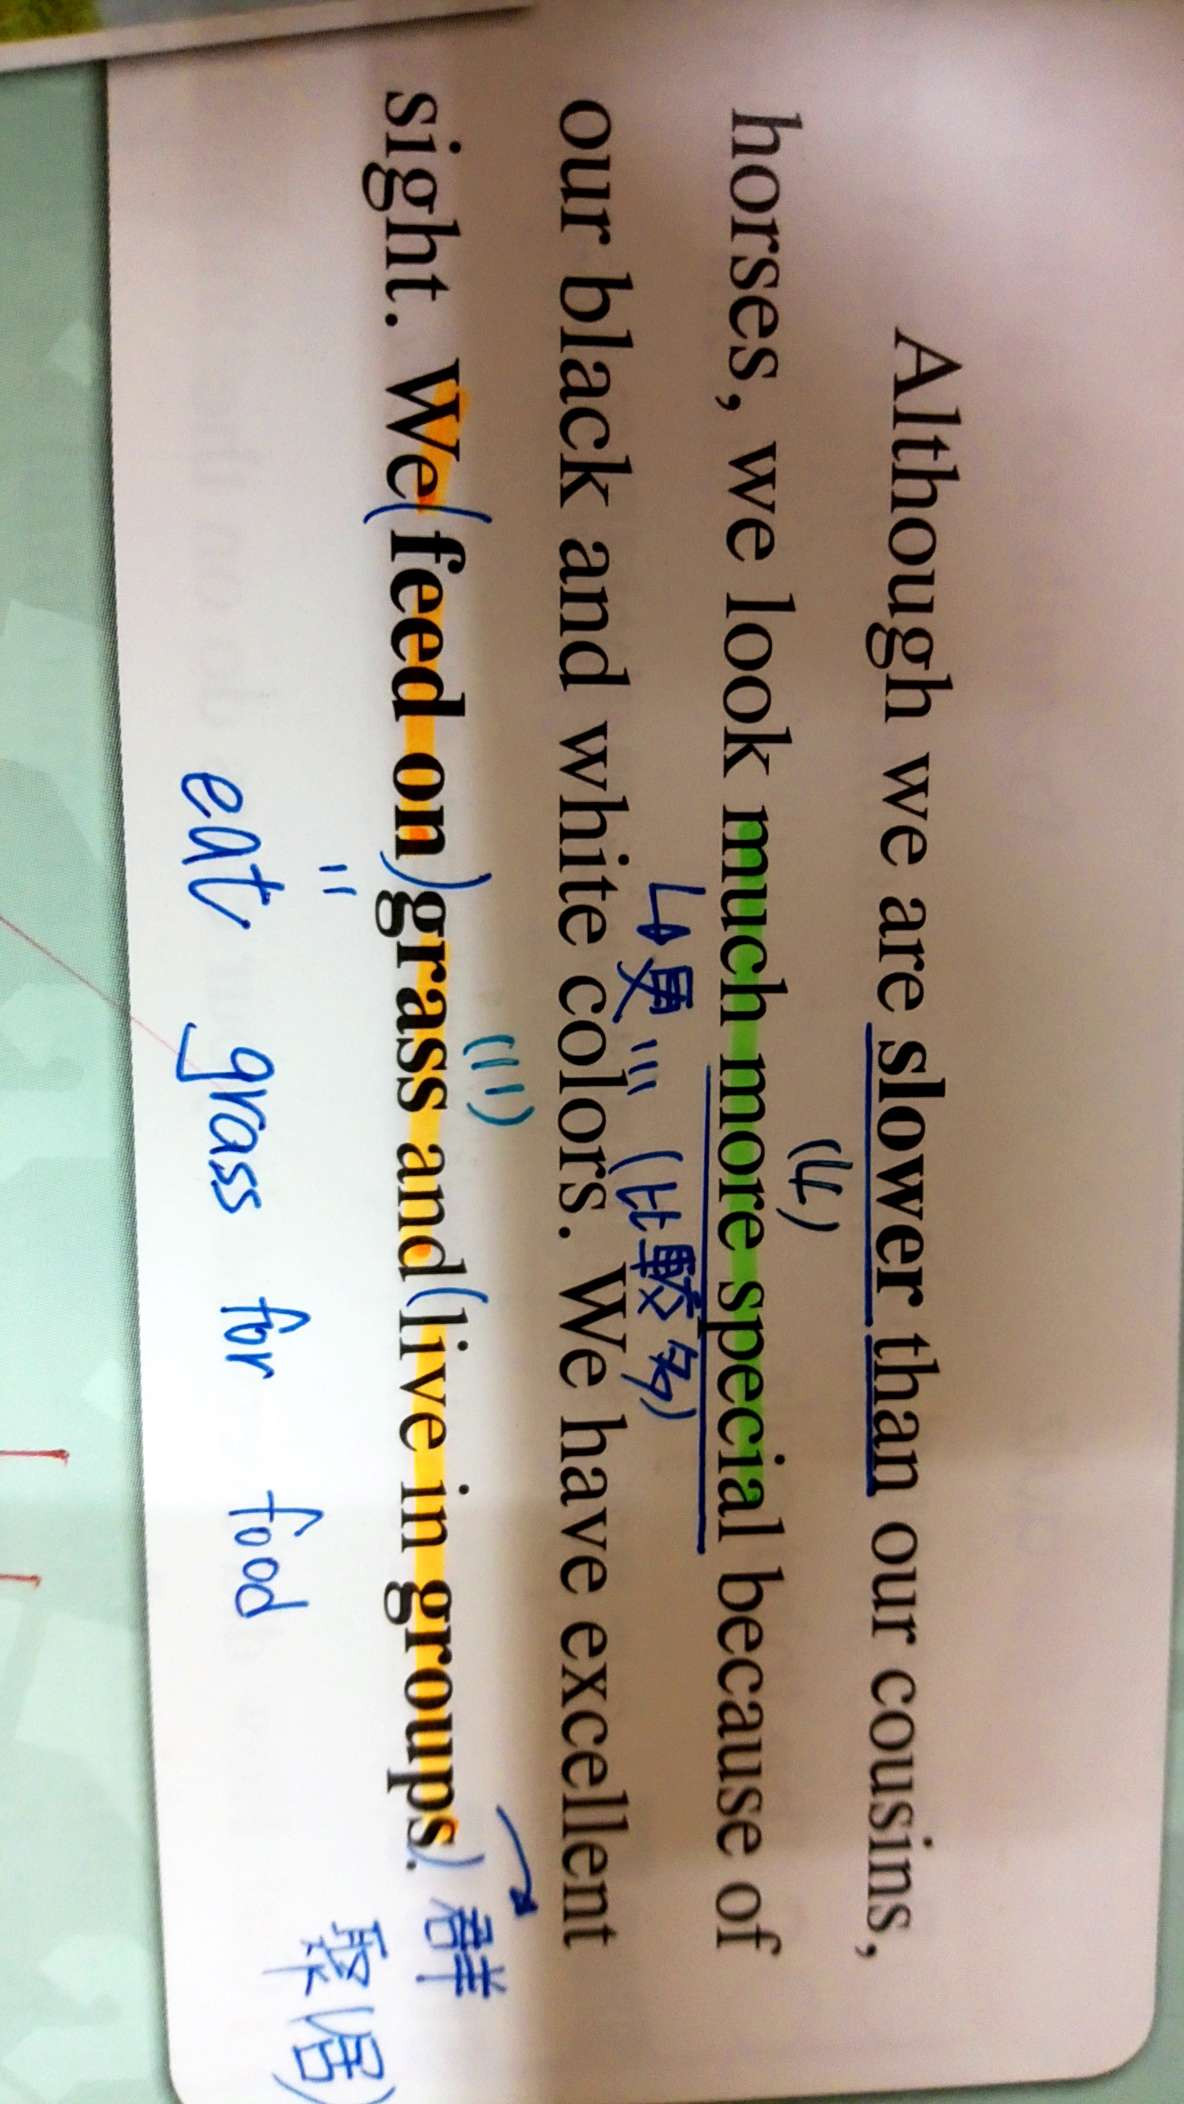 Although we are slower than our cousins,
(4)
horses, we look much more special because of
↳更… (比較多)
our black and white colors. We have excellent
sight. We (feed on) grass and (live in groups.)
群
聚居)
=
eat grass for food